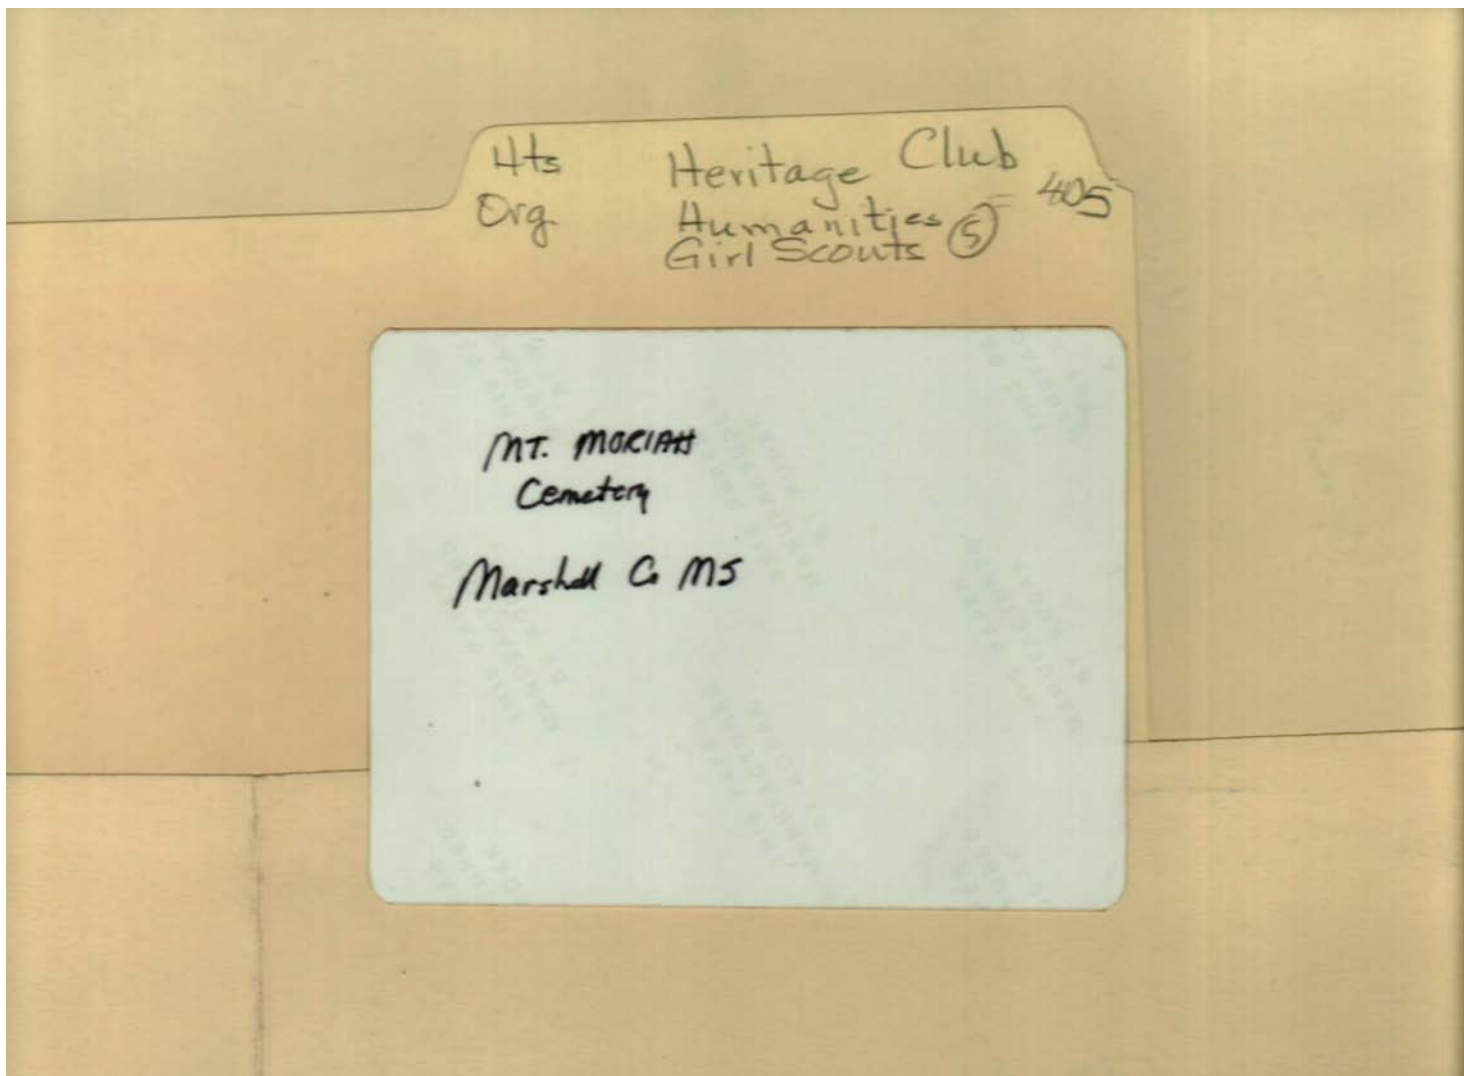 Hts Heritage Club
Org Humanities ⑤ = 405
Girl Scouts
MT. MORIAH
Cemetery
Marshall Co MS